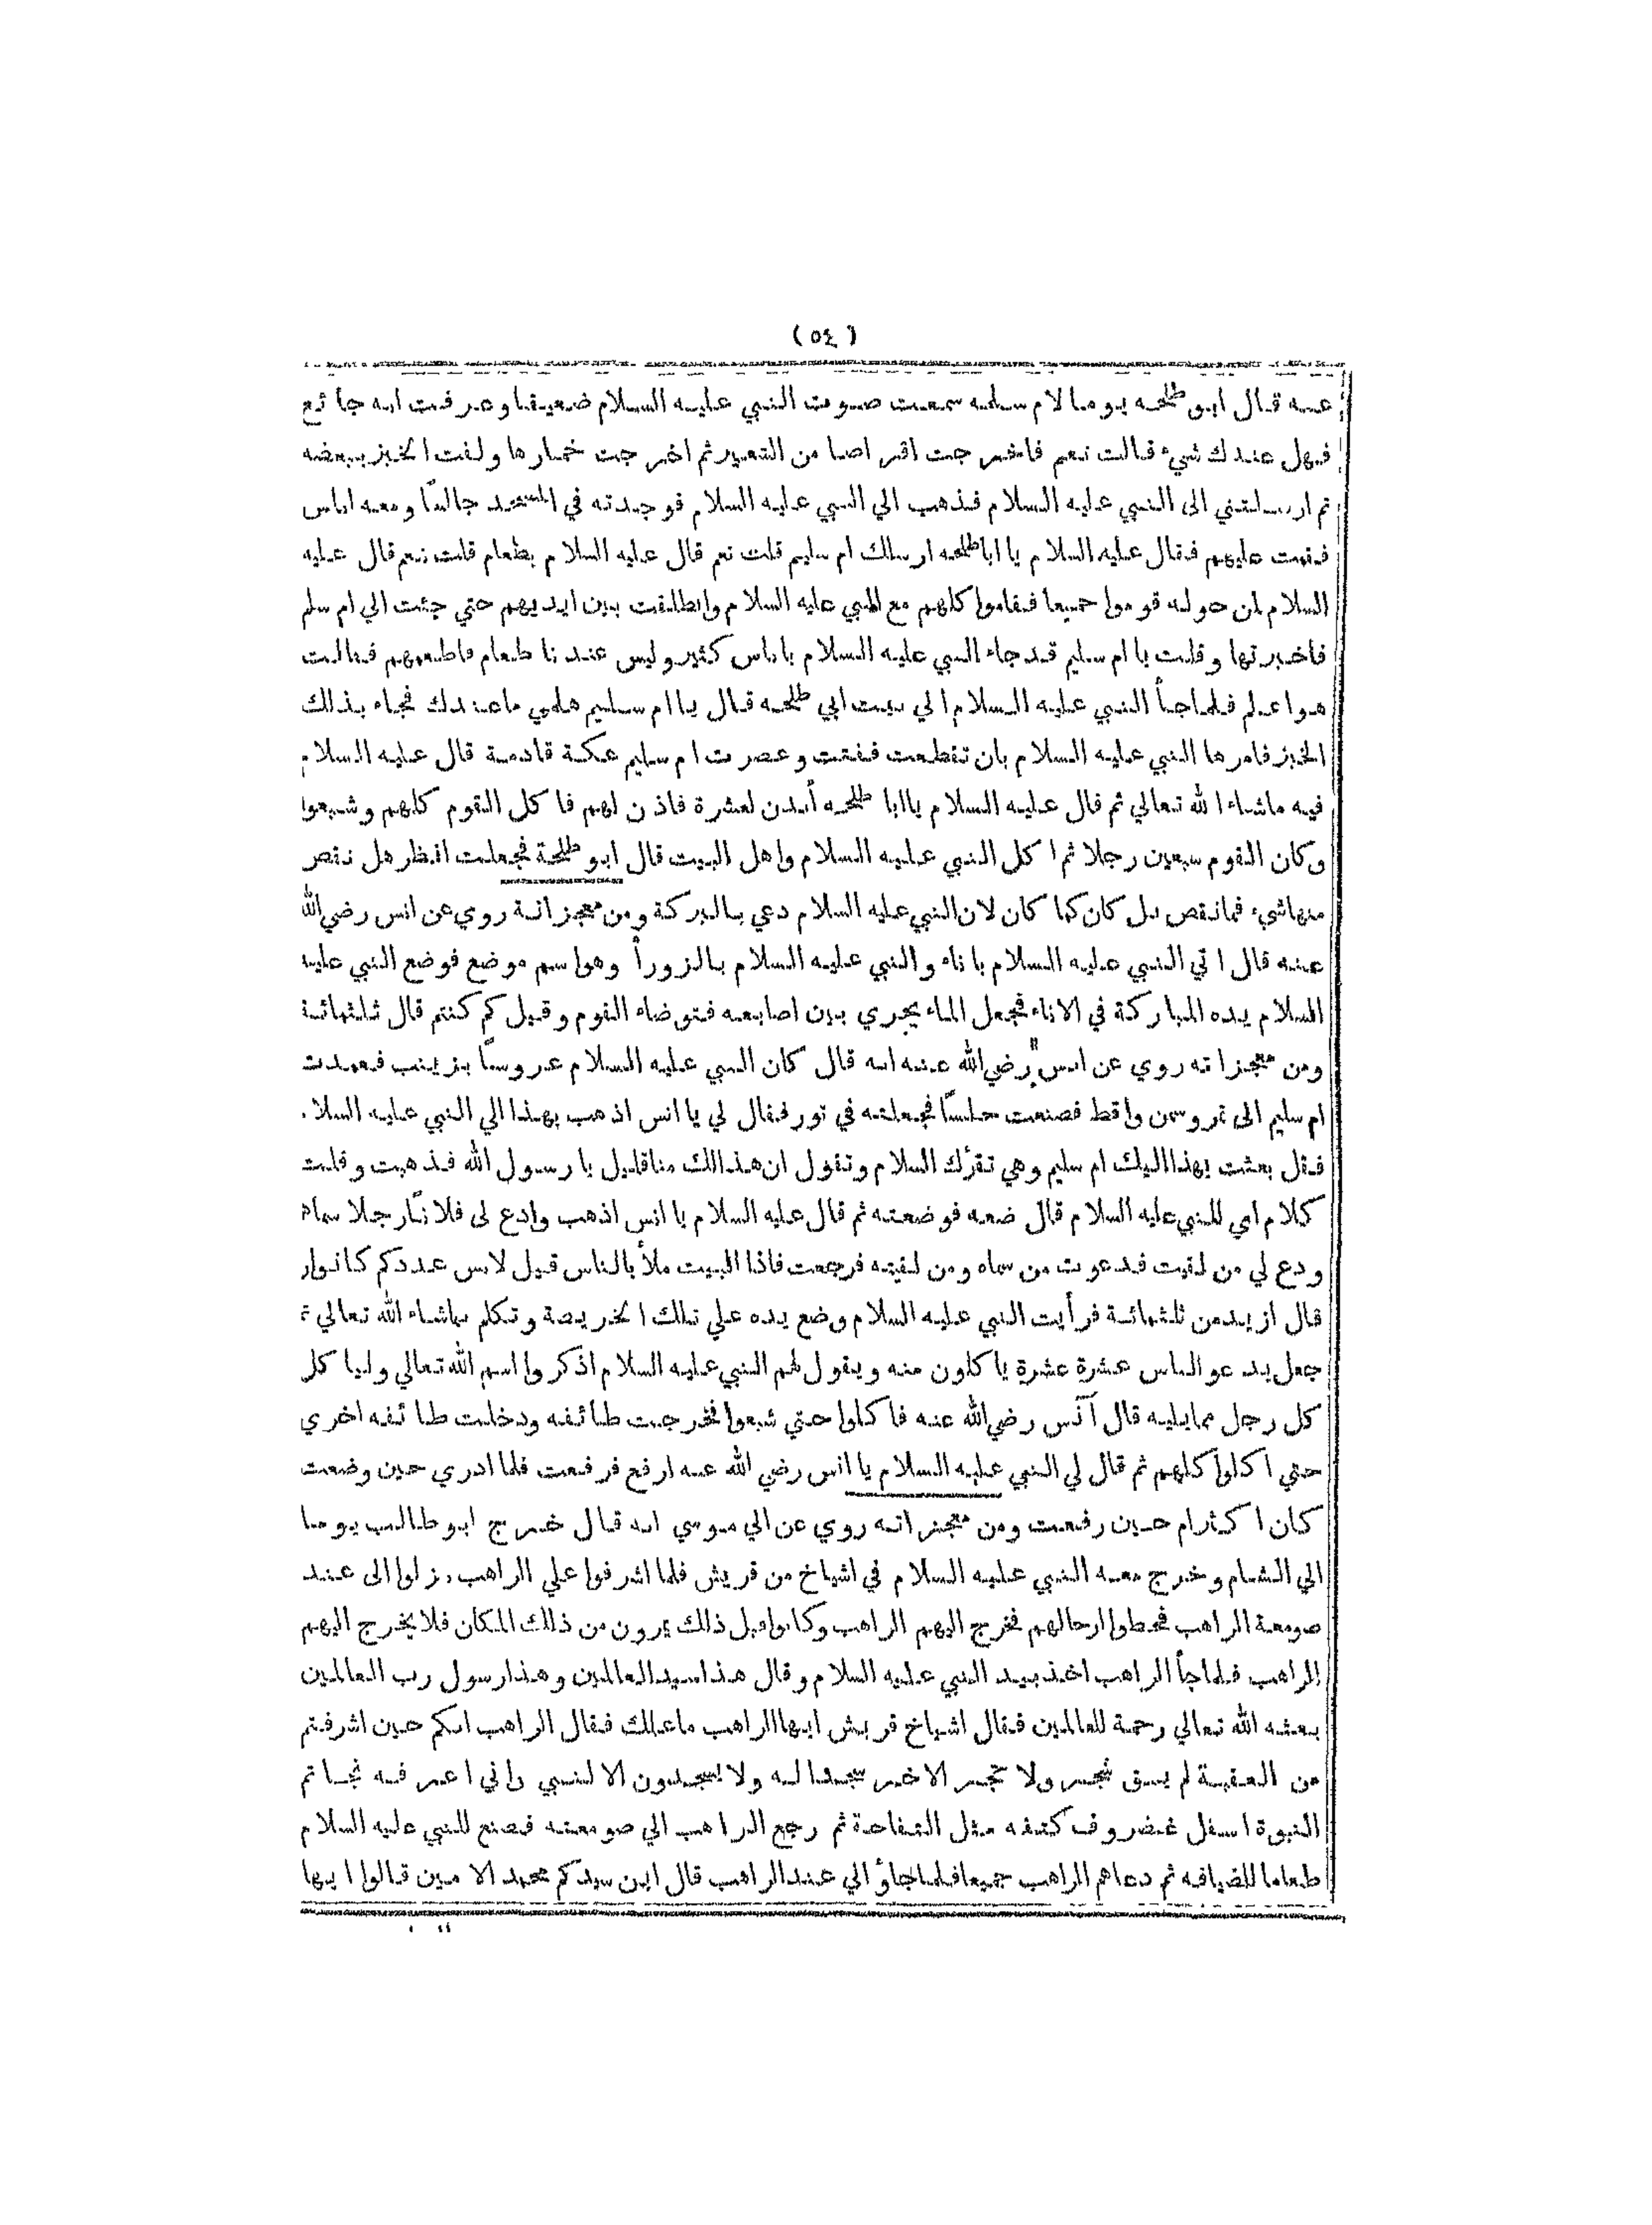 (٥٤)
عنه قال ابو طلحه يوما لام سلمه سمعت صوت النبي عليه السلام ضعيفا وعرفت انه جائع
فهل عندك شيء قالت نعم فاخرجت اقراصا من الشعير ثم اخرجت خمارها ولفت الخبز ببعضه
ثم ارسلتني الى النبي عليه السلام فذهب الي النبي عليه السلام فوجدته في المسجد جالسًا ومعه اناس
فقمت عليهم فقال عليه السلام يا ابا طلحه ارسلك ام سليم قلت نعم قال عليه السلام بطعام قلت نعم قال عليه
السلام لمن حوله قوموا جميعا فقاموا كلهم مع النبي عليه السلام وانطلقت بين ايديهم حتي جئت الي ام سلم
فاخبرتها وقلت يا ام سليم قد جاء النبي عليه السلام باناس كثير وليس عندنا طعام فاطعمهم فقالت
هو اعلم فلما جأ النبي عليه السلام الي بيت ابي طلحه قال يا ام سليم هلمي ما عندك فجاء بذلك
الخبز فامرها النبي عليه السلام بان تقطعت ففتت وعصرت ام سليم عكة قادمة قال عليه السلام
فيه ماشاء الله تعالي ثم قال عليه السلام يا ابا طلحه أئدن لعشرة فاذن لهم فاكل القوم كلهم وشبعوا
وكان القوم سبعين رجلا ثم اكل النبي عليه السلام واهل البيت قال ابو طلحة فجعلت انظر هل نقص
منها شيء فمانقص بل كان كما كان لان النبي عليه السلام دعي بالبركة ومن معجزاتة روي عن انس رضي الله
عنه قال اتي النبي عليه السلام باناء والنبي عليه السلام بالزورأ وهو اسم موضع فوضع النبي عليه
السلام يده المباركة في الاناء فجعل الماء يجري بين اصابعه فتوضاء القوم وقيل كم كنتم قال ثلثمائة
ومن معجزاته روي عن انس رضي الله عنه انه قال كان النبي عليه السلام عروسًا بزينب فعمدت
ام سليم الى تمر وسمن واقط فصنعت حلسًا فجعلته في تور فقال لي يا انس اذهب بهذا الي النبي عليه السلا
فقل بعثت بهذا اليك ام سليم وهي تقرئك السلام وتقول ان هذا لك منا قليل يا رسول الله فذهبت وقلت
كلام امي للنبي عليه السلام قال ضعه فوضعته ثم قال عليه السلام يا انس اذهب وادع لى فلانًا رجلا سماه
ودع لي من لقيت فدعوت من سماه ومن لقيته فرجعت فاذا البيت ملأ بالناس قيل لانس عددكم كانوار
قال ازيد من ثلثمائة فرأيت النبي عليه السلام وضع يده علي تلك الخريصة وتكلم بماشاء الله تعالي ثم
جعل يدعو الناس عشرة عشرة ياكلون منه ويقول لهم النبي عليه السلام اذكروا اسم الله تعالي وليا كل
كل رجل مما يليه قال آنَس رضي الله عنه فاكلوا حتي شبعوا فخرجت طائفه ودخلت طائفه اخري
حتي اكلوا كلهم ثم قال لي النبي عليه السلام يا انس رضي الله عنه ارفع فرفعت فلما ادري حين وضعت
كان اكثر ام حين رفعت ومن معجزاته روي عن ابي موسي انه قال خرج ابو طالب يوما
الي الشام وخرج معه النبي عليه السلام في اشياخ من قريش فلما اشرفوا علي الراهب نزلوا الى عند
صومعة الراهب فحطوا رحالهم فخرج اليهم الراهب وكانوا قبل ذلك يمرون من ذلك المكان فلا يخرج اليهم
الراهب فلما جأ الراهب اخذ بيد النبي عليه السلام وقال هذا سيد العالمين وهذا رسول رب العالمين
بعثه الله تعالي رحمة للعالمين فقال اشياخ قريش ايها الراهب ما علمك فقال الراهب انكم حين اشرفتم
من العقبة لم يبق شجر ولا حجر الا خر سجدا له ولا يسجدون الا لنبي واني اعرفه بخاتم
النبوة اسفل غضروف كتفه مثل التفاحة ثم رجع الراهب الي صومعته فصنع للنبي عليه السلام
طعاما للضيافه ثم دعاهم الراهب جميعا فلما جاؤ الي عند الراهب قال اين سيدكم محمد الامين قالوا ايها